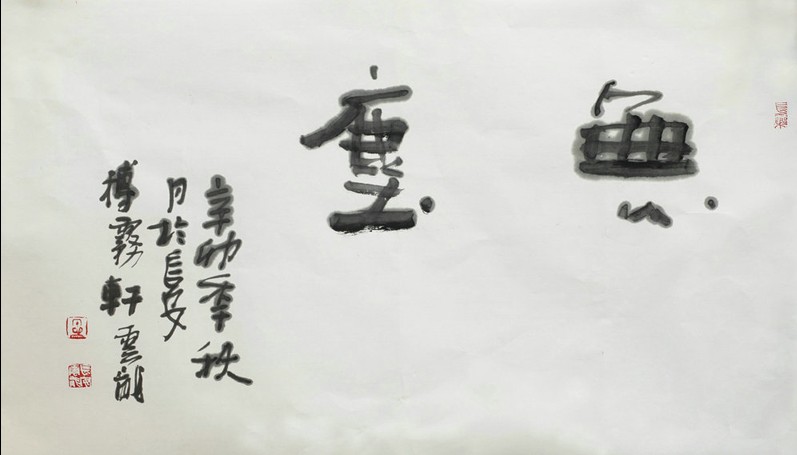 無塵
辛卯年秋
月於長安
搏霧軒雲